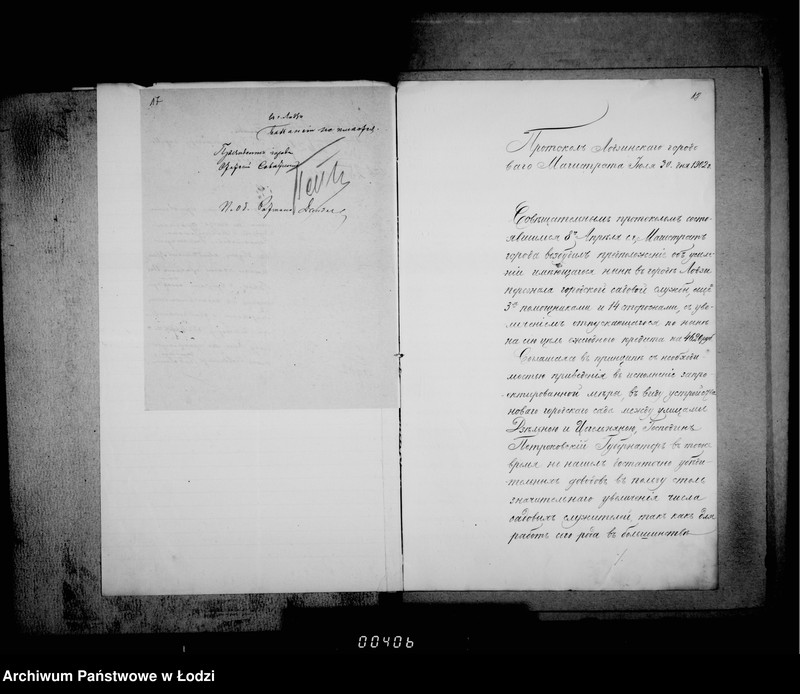 17
Президентъ города
18
Протоколъ Лодзинскаго городо
ваго Магистрата Іюля 30 дня 1902 г.
Совѣщательнымъ протоколомъ состо-
явшимся 8го Апрѣля с. г. Магистратъ
города возбудилъ предположеніе объ усиле-
ніи имѣющагося нынѣ въ городѣ Лодзи
персонала городской садовой службы, ещё
3мя помощниками и 14 сторожами, съ уве-
личеніемъ отпускающагося по нынѣ
на сію цѣль ежегоднаго кредита на руб
Соглашаясь въ принципѣ съ необходи-
мостью приведенія въ исполненіе запро-
ектированной мѣры, въ виду устройства
новаго городскаго сада между улицами
Дѣльной и Цегельняной, Господинъ
Петроковскій Губернаторъ въ тоже
время не нашелъ достаточно убѣди-
тельныхъ доводовъ въ пользу столь
значительнаго увеличенія числа
садовыхъ служителей, такъ какъ для
работъ сего рода въ большинствѣ
./.
00406
Archiwum Państwowe w Łodzi